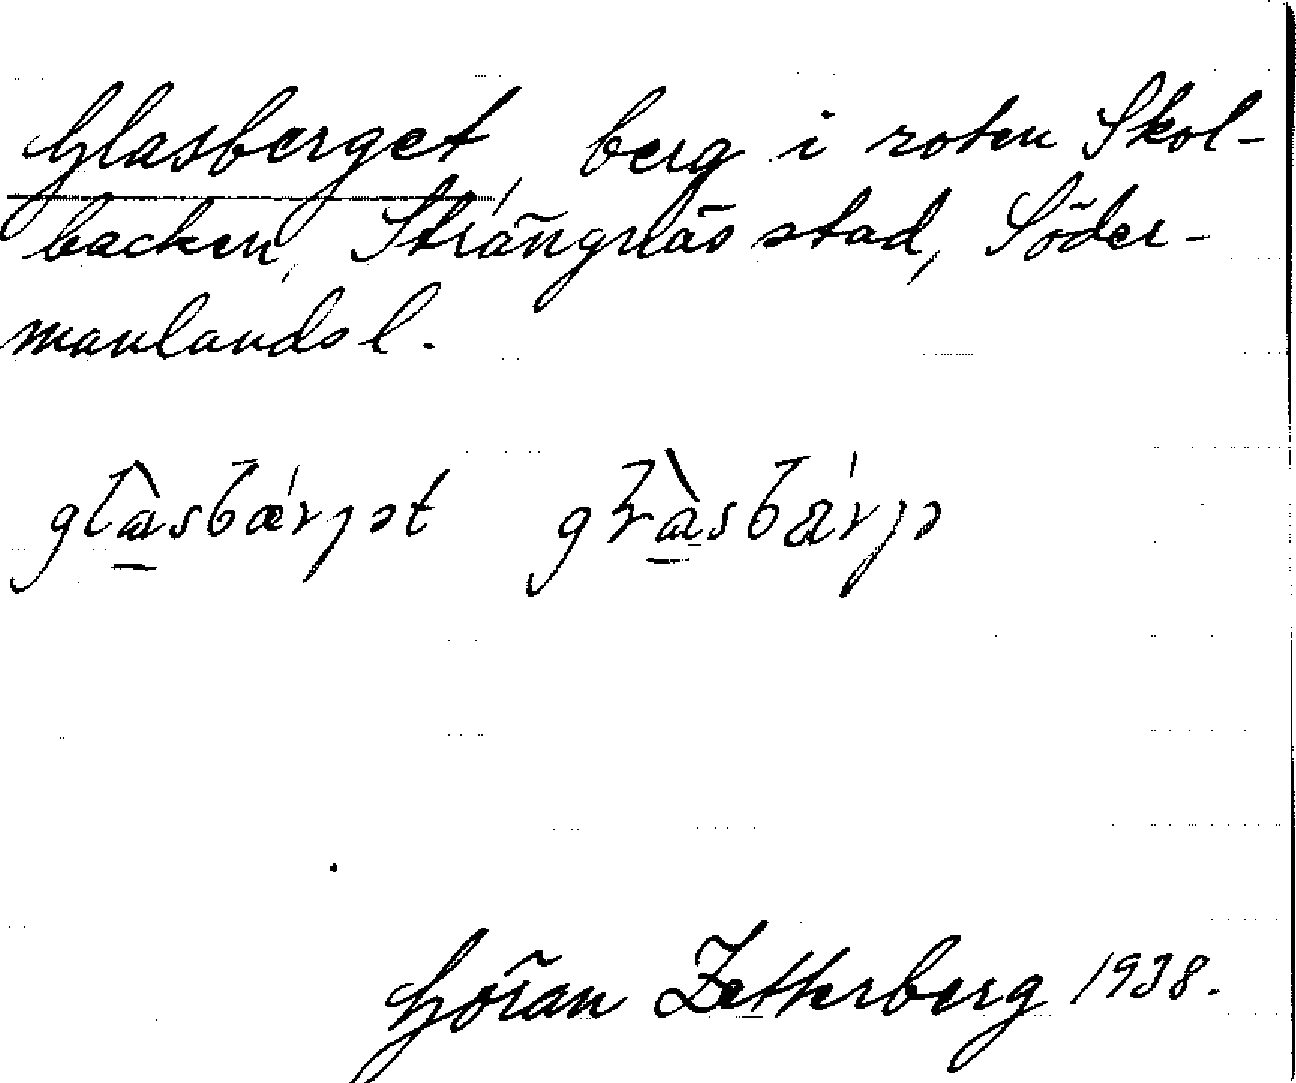 Glasberget, berg i roten Skol-
backen, Strängnäs stad, Söder-
manlands l.
Göran Zetterberg 1938.